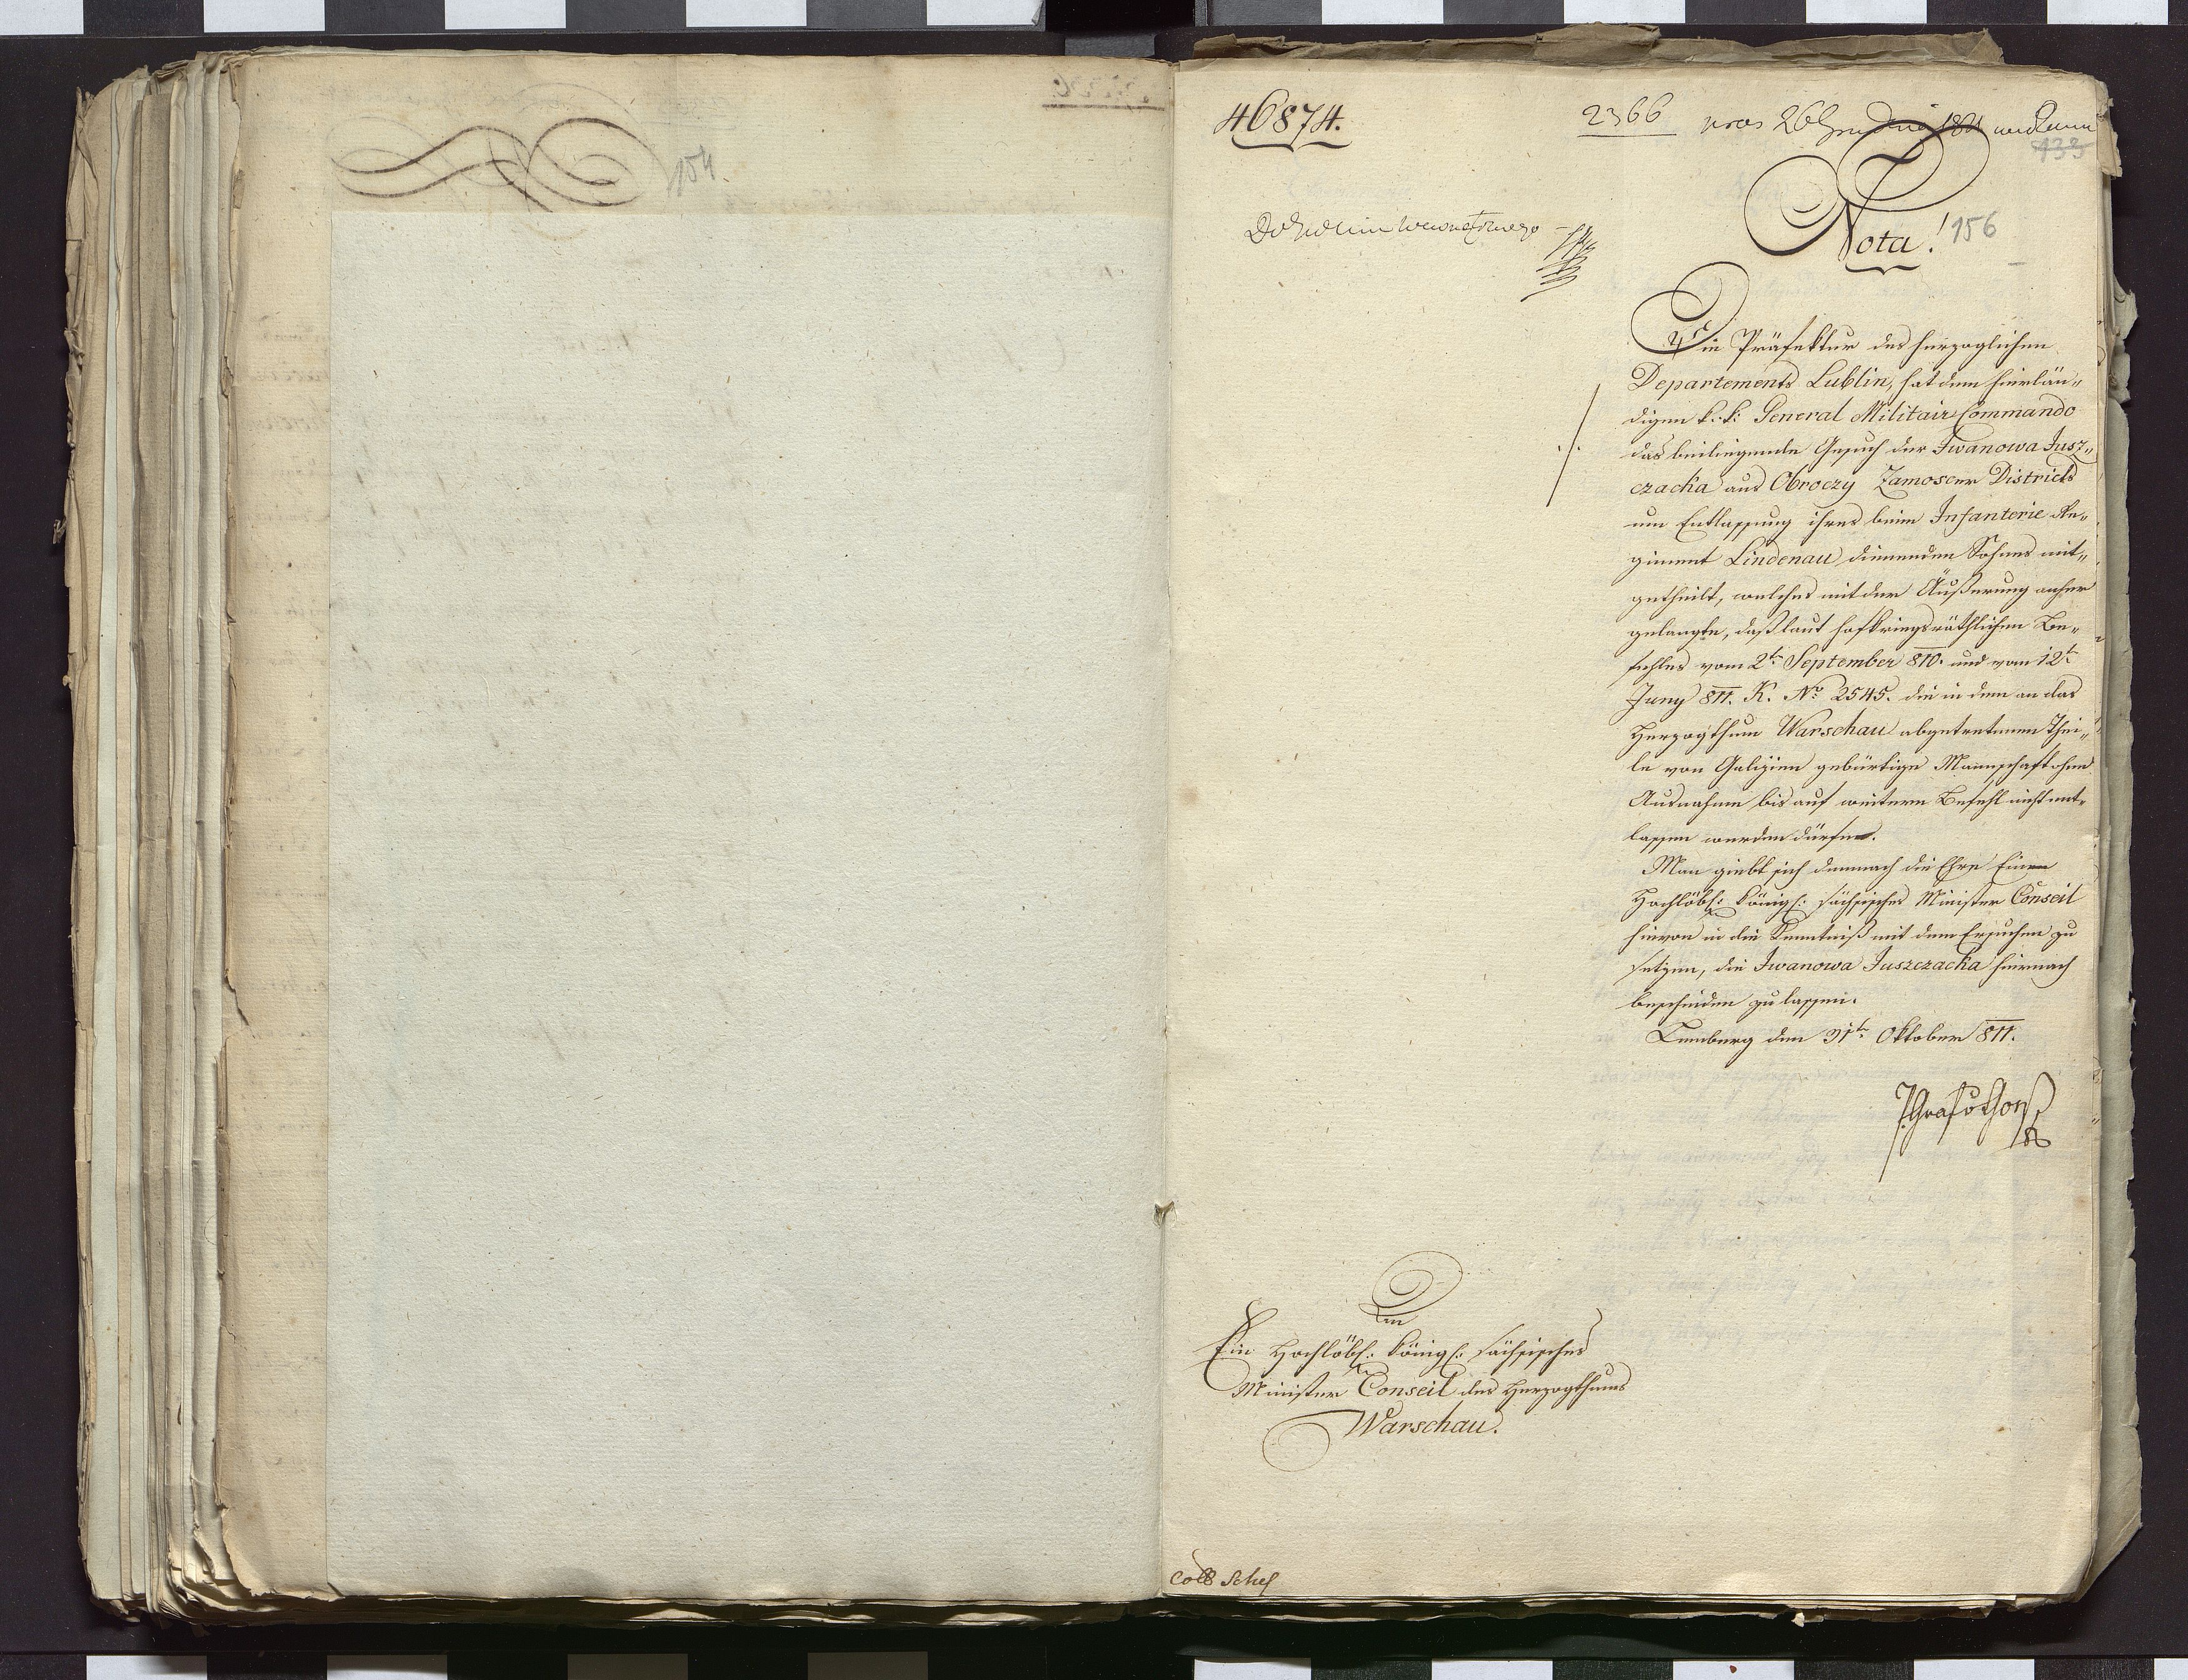 154.
46874.
2366
26 Grudnia 1811
133
Nota!
156
Die Präfektur des herzoglichen
Departements Lublin, hat dem hierlän„
digen k: k: General Militair Commando
das beiliegende Gesuch der Iwanowa Jusz„
czacka aus Obroczy Zamoscer Districts
um Entlassung ihres beim Infanterie Re„
giment Lindenau dienenden Sohnes mit„
getheilt, welches mit der Äußerung anher
gelangte, daß laut hofkriegsräthlichen Be„
fehles vom 2t. September 810. und vom 12t.
Juny 811. K. No. 2545. die in dem an das
Herzogthum Warschau abgetretenen Thei„
le von Galizien gebürtige Mannschaft ohne
Ausnahme bis auf weitern Befehl nicht ent„
lassen werden dürfe.
Man giebt sich demnach die Ehre Ein
Hochlöbl: königl: sächsisches Minister Conseil
hievon in die Kenntniß mit dem Ersuchen zu
setzen, die Iwanowa Juszczacka hiernach
bescheiden zu lassen.
Lemberg den 31t. Oktober 811.
An
Ein Hochlöbl: königl: sächsisches
Minister Conseil des Herzogthums
Warschau.